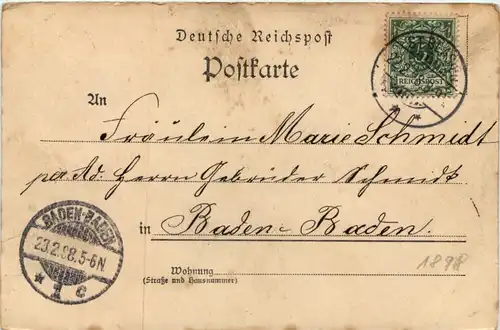 Deutsche Reichspost
Postkarte
REICHSPOST
An
Fräulein Marie Schmidt
per Ad. Herrn Gebrüder Schmidt
in Baden-Baden.
BADEN-BADEN
23.2.98.5-6N.
* 1 c
Wohnung
(Straße und Hausnummer)
1898